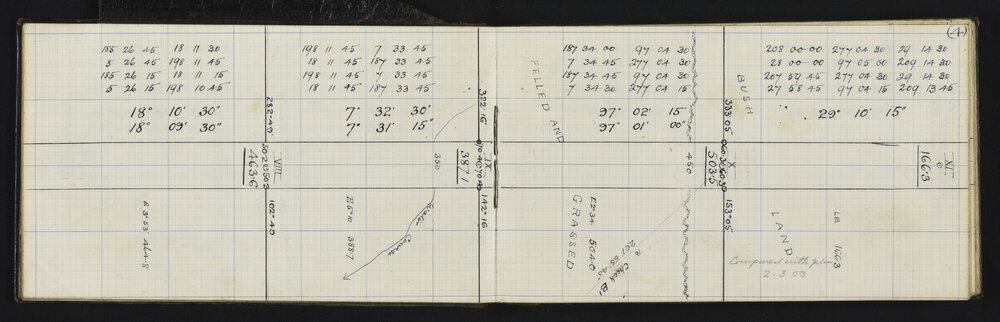 (4)
185 26 45 18 11 30
5 26 45 198 11 45
185 26 15 18 11 15
5 26 15 198 10 45
18° 10' 30"
18° 09' 30"
282°49'
VIII
463.6
102°49
E 3°53 464.8
198 11 45 7 33 45
18 11 45 187 33 45
198 11 45 7 33 45
18 11 45 187 33 45
7° 32' 30"
7° 31' 15"
322°16'
350
IX
387.1
142°16
E 6°10 3887
Water Course
187 34 00 97 04 30
7 34 45 277 04 30
187 34 45 97 04 30
7 34 30 277 04 15
FELLED AND
97° 02' 15"
97° 01' 00"
333°05'
450
X
503.5
153°05
E 2°34 504.0
GRASSED
to Check B
BUSH
208 00 00 277 04 30 29 14 30
28 00 00 97 05 00 209 14 30
207 59 45 277 04 30 29 14 30
27 58 45 97 04 15 209 13 45
29° 10' 15"
XI
0
166.3
LAND
1663
Compared with plan
2.3.03